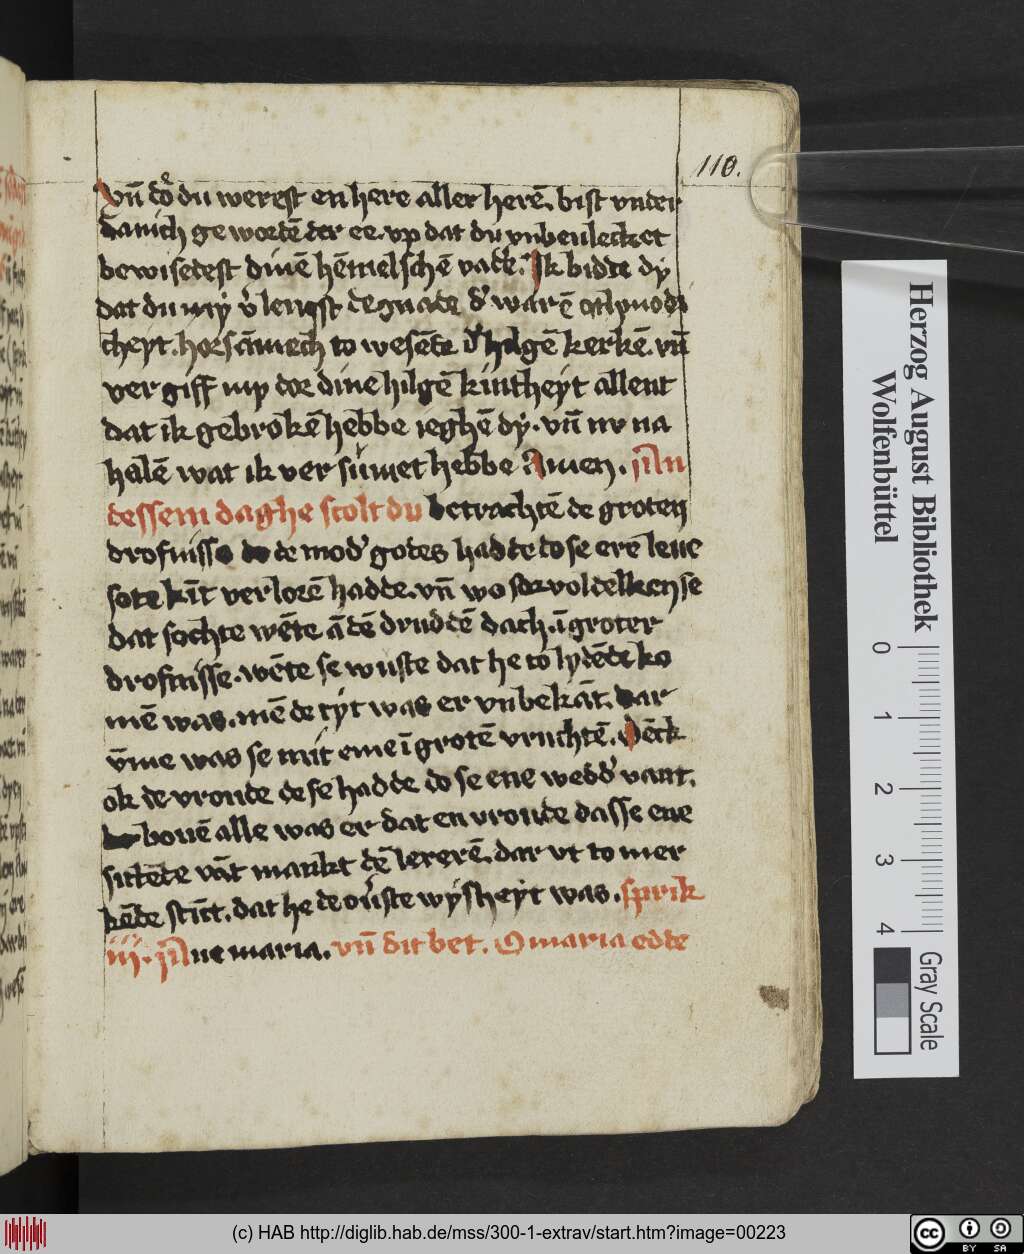 110.
Vn̄ do͛ du werest en here aller herē. bist vnder
danich ge wordē der ee. vp dat du vnbeulecket
bewisedest dinē hēmelschē vade͛. Ik bidde dy
dat du my v͛lengst de gnade d͛ warē othmodi
cheyt. horsāmech to wesēde d͛ hilgē kerkē. vn̄
vergiff my dor dine hilgē kintheyt allent
dat ik gebrokē hebbe ieghē dy. vn̄ nv na
halē wat ik ver sūmet hebbe Amen. In
dessem daghe scolt du betrachtē de groten
drofnisse de mod͛ godes hadde do se ere leue
sote kīt verlorē hadde. vn̄ wo
dat sochte wēte ā dē drudde dach. ī groter
drofnisse. wēte se wuste dat he to lydēde ko
mē was. mē de tyt was er vnbekāt. dar
v̄me was se mit eme ī grotē vruchtē. Dēck
ok de vroude de se hadde do se ene wedd͛ vant.
bouē alle was er dat en vroude dasse ene
sittēde vāt mankt dē lererē. dar vt to mer
kēde stūt. dat he de ou͛ste wysheyt was. sprik
iij. Aue maria. vn̄ dit bet. O maria edde
Herzog August Bibliothek
Wolfenbüttel
0 1 2 3 4
Gray Scale
(c) HAB http://diglib.hab.de/mss/300-1-extrav/start.htm?image=00223
cc BY SA